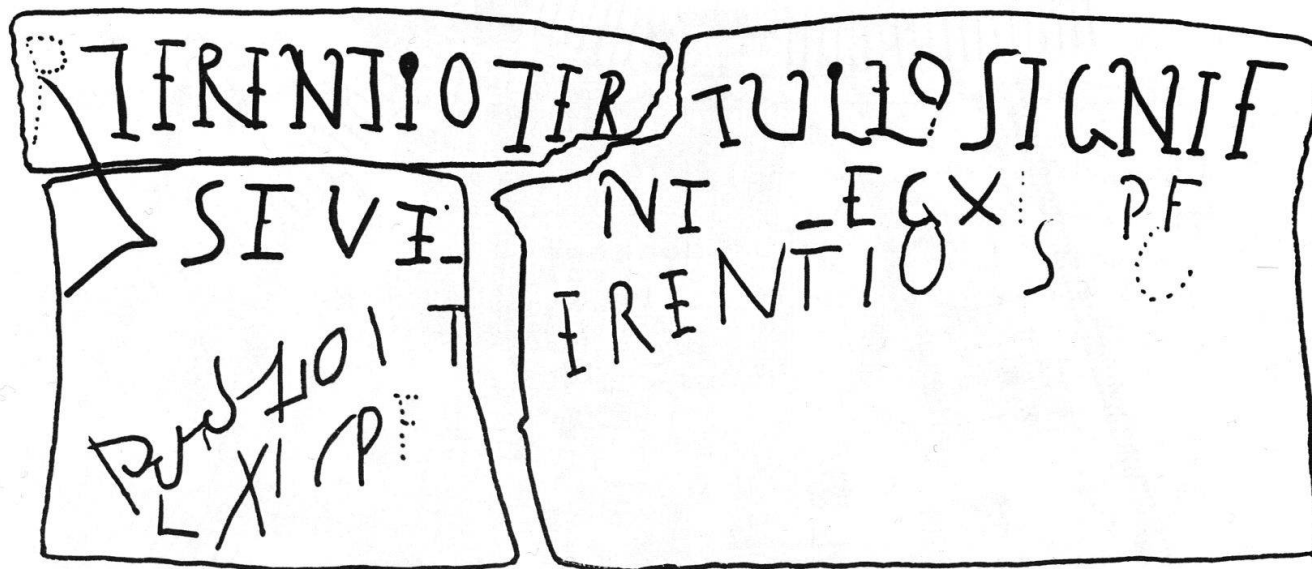 P TERENTIO TERTULLO SIGNIF
SEVERI NI LEG XI PF
T ERENTIO S C
L XI C P F